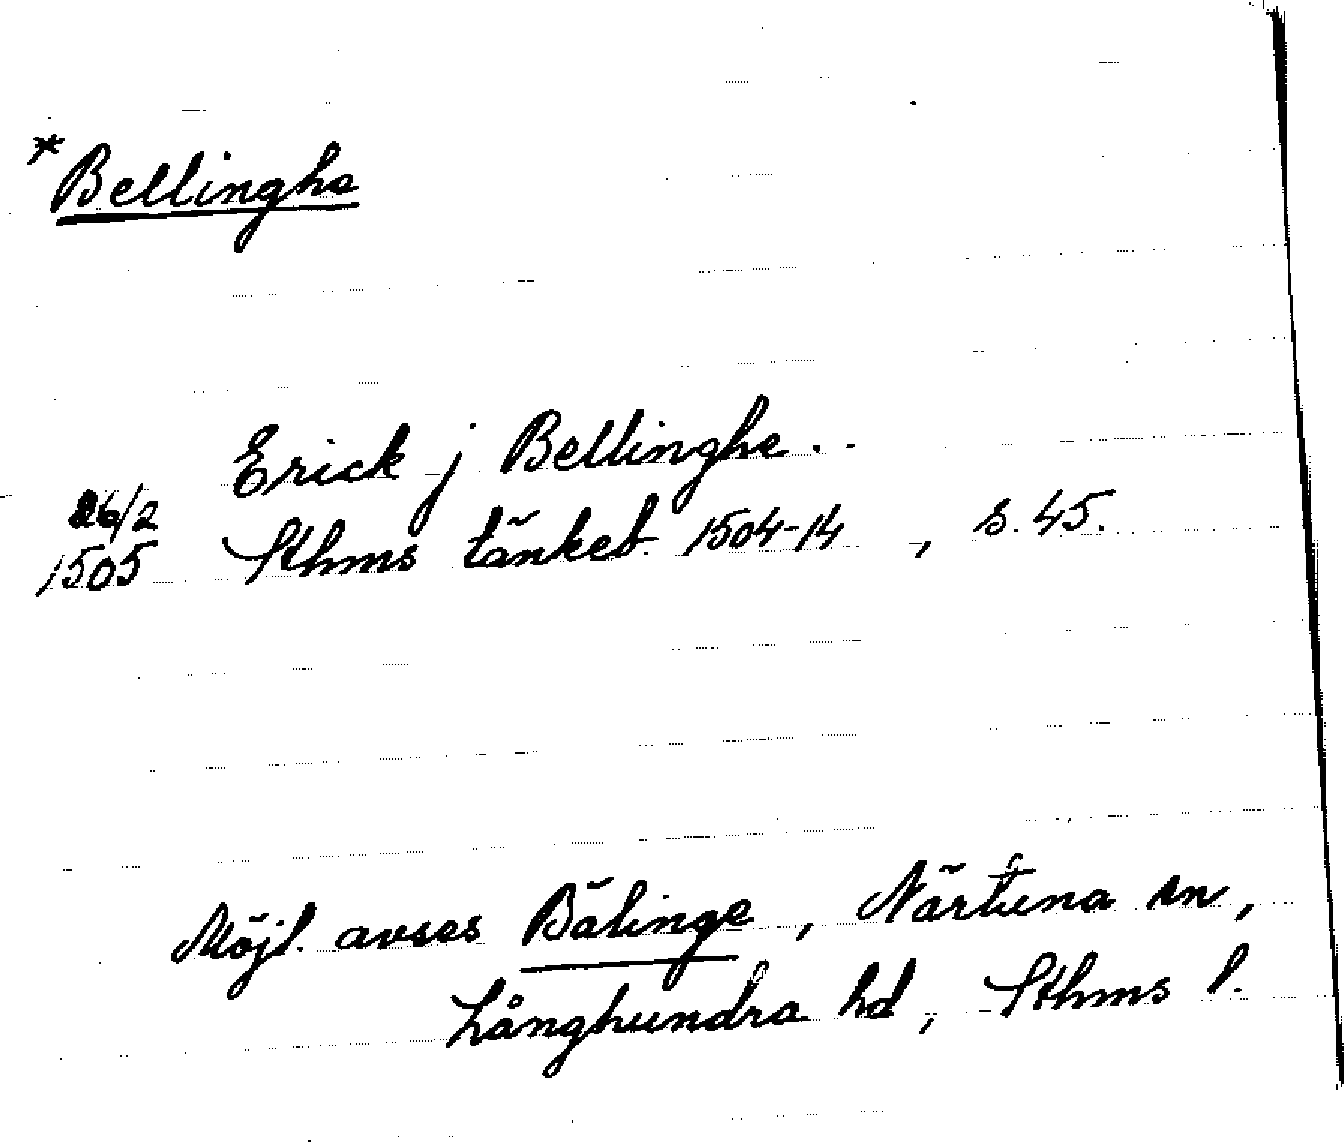 *Bellinghe
Erick j Bellinghe . .
26/2
1505 Sthms tänkeb 1504-14, s. 45.
Möjl. avses Bälinge, Närtuna sn,
Långhundra hd, Sthms l.